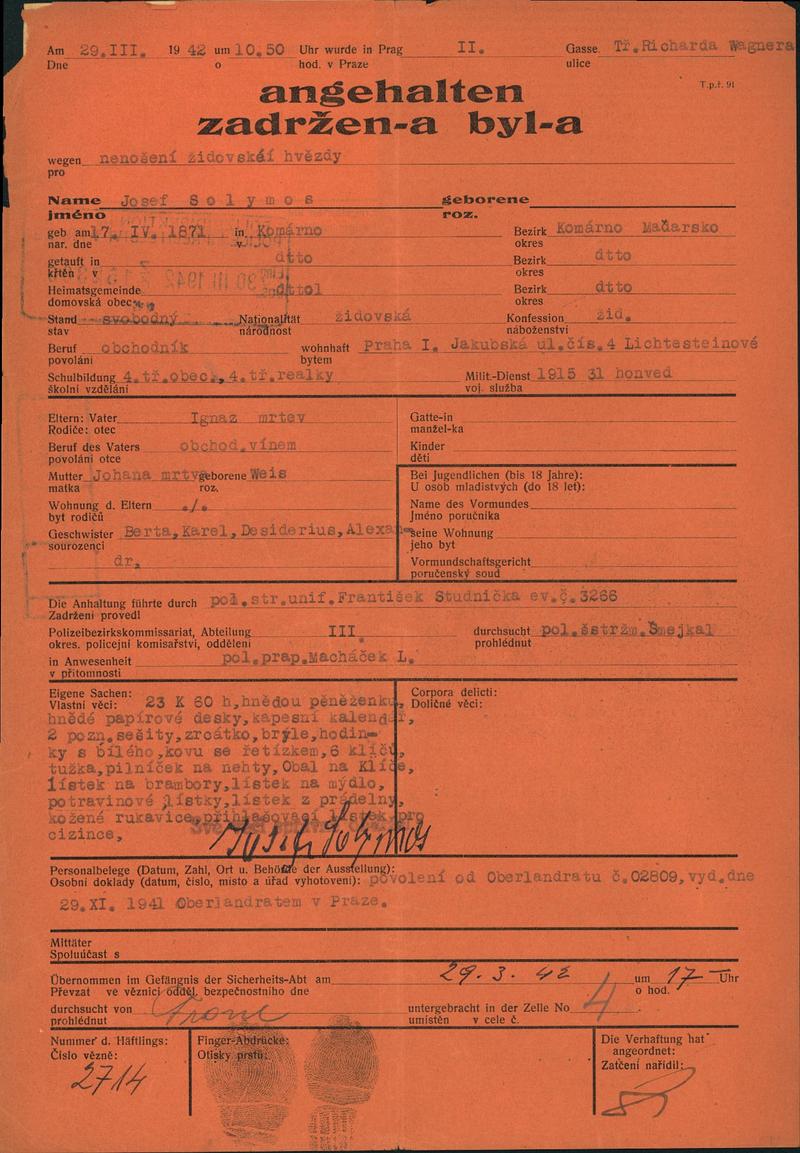 Am 29.III. 1942 um 10.50 Uhr wurde in Prag II. Gasse. Tř.Richarda Wagnera
Dne o hod. v Praze ulice
angehalten T.p.ř. 91
zadržen-a byl-a
wegen nenošení židovskéí hvězdy
pro
Name Josef Solymos geborene
jméno roz.
geb am 17. IV. 1871 in Komárno Bezirk Komárno Maďarsko
nar. dne v okres
getauft in - dtto Bezirk dtto
křtěn v okres
Heimatsgemeinde dttol Bezirk dtto
domovská obec okres
Stand svobodný Nationalität židovská Konfession žid.
stav národnost náboženství
Beruf obchodník wohnhaft Praha I. Jakubská ul.čís.4 Lichtesteinové
povolání bytem
Schulbildung 4.tř.obec., 4.tř.realky Milit.-Dienst 1915 31 honved
školní vzdělání voj. služba
Eltern: Vater Ignaz mrtev Gatte-in
Rodiče: otec manžel-ka
Beruf des Vaters obchod.vínem Kinder
povolání otce děti
Mutter Johana mrtv geborene Weis Bei Jugendlichen (bis 18 Jahre):
matka roz. U osob mladistvých (do 18 let):
Wohnung d. Eltern ./. Name des Vormundes
byt rodičů Jméno poručníka
Geschwister Berta,Karel,Desiderius,Alexan- seine Wohnung
sourozenci jeho byt
dr. Vormundschaftsgericht
poručenský soud
Die Anhaltung führte durch pol.str.unif.František Studnička ev.č.3266
Zadržení provedl
Polizeibezirkskommissariat, Abteilung III. durchsucht pol.šstržm.Šmejkal
okres. policejní komisařství, oddělení prohlédnut
in Anwesenheit pol.prap.Macháček L.
v přítomnosti
Eigene Sachen: 23 K 60 h,hnědou peněženku, Corpora delicti:
Vlastní věci: Doličné věci:
hnědé papírové desky,kapesní kalendář,
2 pozn.sešity,zrcátko,brýle,hodin-
ky s bílého,kovu se řetízkem,6 klíčů,
tužka,pilníček na nehty,Obal na Klíče,
lístek na brambory,lístek na mýdlo,
potravinové lístky,lístek z prádelny,
kožené rukavice,přihlašovací lístek pro
cizince,
Josef Solymos
Personalbelege (Datum, Zahl, Ort u. Behörde der Ausstellung):
Osobní doklady (datum, číslo, místo a úřad vyhotovení): povolení od Oberlandratu č.02809,vyd.dne
29.XI. 1941 Oberlandratem v Praze.
Mittäter
Spoluúčast s
Übernommen im Gefängnis der Sicherheits-Abt am 29.3.42 um 17 Uhr
Převzat ve věznici odděl. bezpečnostního dne o hod.
durchsucht von untergebracht in der Zelle No 4
prohlédnut umístěn v cele č.
Nummer d. Häftlings: Finger-Abdrücke: Die Verhaftung hat
Číslo vězně: Otisky prstů: angeordnet:
2714 Zatčení nařídil: